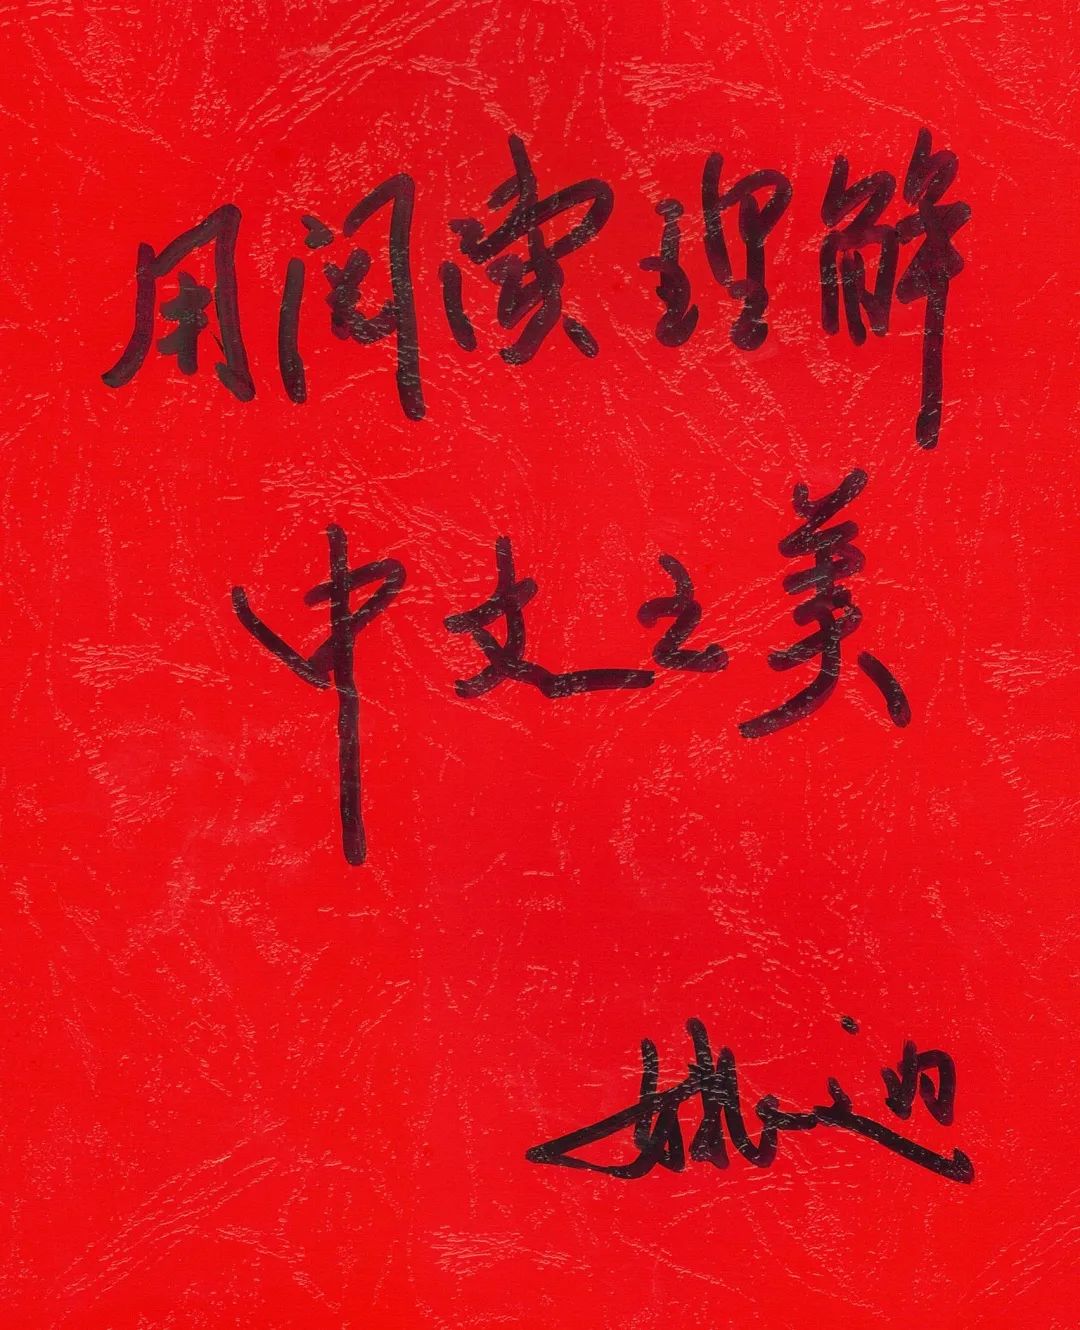 用阅读理解
中文之美
姚迪